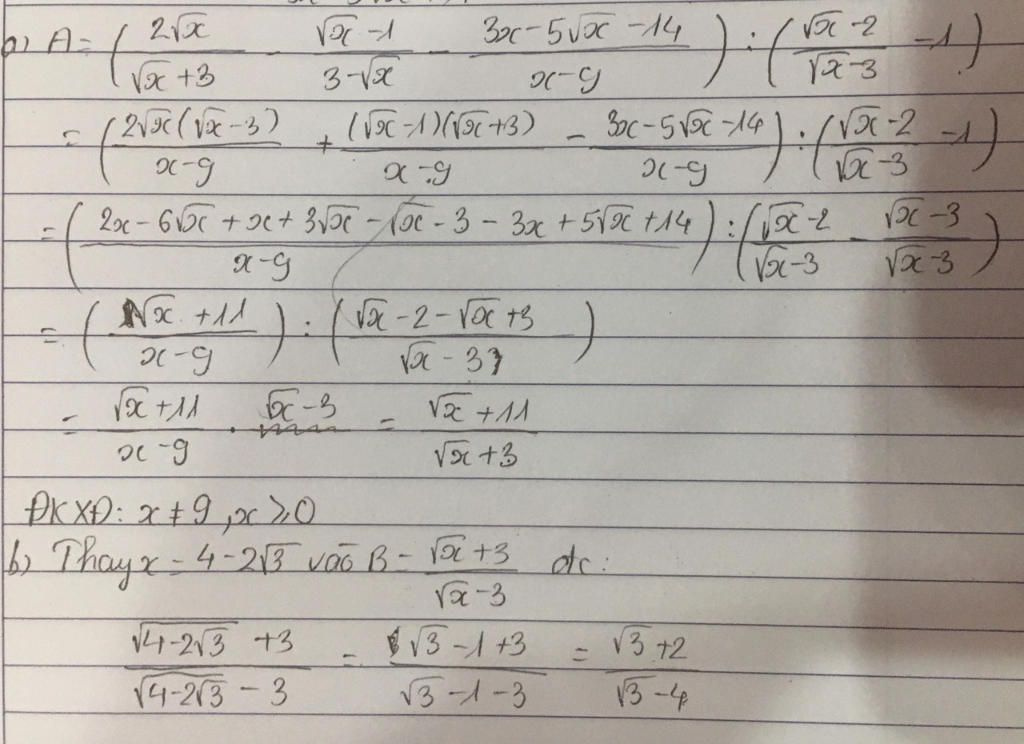 a) A = (2√x/(√x+3) - (√x-1)/(3-√x) - (3x-5√x-14)/(x-9)) : ((√x-2)/(√x-3) - 1)
= (2√x(√x-3)/(x-9) + (√x-1)(√x+3)/(x-9) - (3x-5√x-14)/(x-9)) : ((√x-2)/(√x-3) - 1)
= ((2x-6√x+x+3√x-√x-3-3x+5√x+14)/(x-9)) : ((√x-2)/(√x-3) - (√x-3)/(√x-3))
= ((√x+11)/(x-9)) : ((√x-2-√x+3)/(√x-3))
= (√x+11)/(x-9) . √x-3 = (√x+11)/(√x+3)
ĐKXĐ: x ≠ 9, x ≥ 0
b) Thay x = 4-2√3 vào B = (√x+3)/(√x-3) đc:
(√(4-2√3)+3)/(√(4-2√3)-3) = (√3-1+3)/(√3-1-3) = (√3+2)/(√3-4)